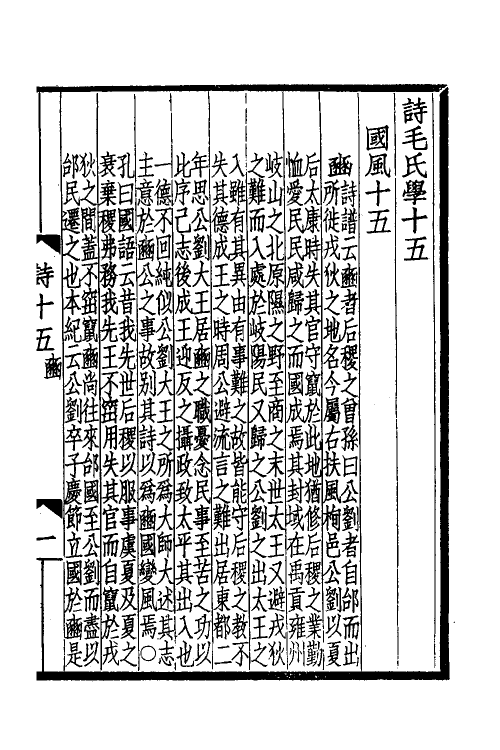 詩毛氏學十五
國風十五
豳詩譜云豳者后稷之曾孫曰公劉者自邰而出
所徙戎狄之地名今屬右扶風栒邑公劉以夏
后太康時失其官守竄於此地猶修后稷之業勤
恤愛民民咸歸之而國成焉其封域在禹貢雍州
岐山之北原隰之野至商之末世太王又避戎狄
之難而入處於岐陽民又歸之公劉之出太王之
入雖有其異由有事難之故皆能守后稷之教不
失其德成王之時周公避流言之難出居東都二
年思公劉大王居豳之職憂念民事至苦之功以
此序己志後成王迎反之攝政致太平其出入也
一德不回純似公劉大王之所為大師大述其志
主意於豳公之事故別其詩以為豳國變風焉○
孔曰國語云昔我先世后稷以服事虞夏及夏之
衰棄稷弗務我先王不窋用失其官而自竄於戎
狄之間蓋不窋竄豳尚往來邰國至公劉而盡以
邰民遷之也本紀云公劉卒子慶節立國於豳是
詩十五 豳
一